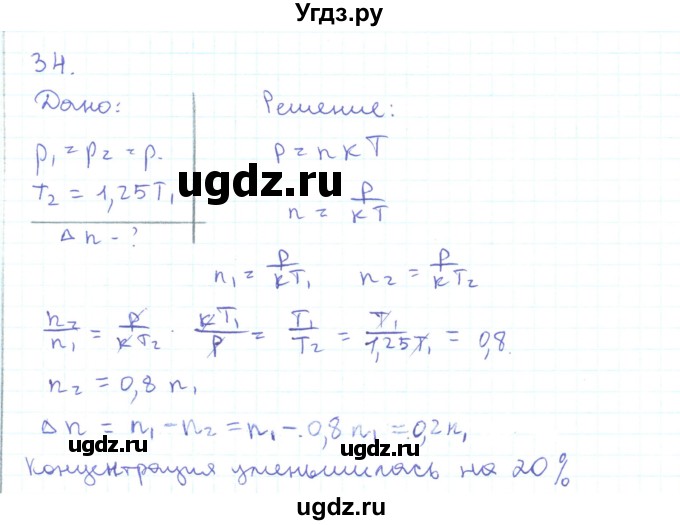 Угдз.ру
34.
Дано: Решение:
p₁ = p₂ = p. p = nkT
T₂ = 1,25T₁ n = p/kT
ugdz.ru
Δn - ?
n₁ = p/kT₁ n₂ = p/kT₂
n₂/n₁ = p/kT₂ · kT₁/p = T₁/T₂ = T₁/1,25T₁ = 0,8.
n₂ = 0,8 n₁
Δn = n₁ - n₂ = n₁ - 0,8n₁ = 0,2n₁
ugdz.ru ugdz.ru
Концентрация уменьшилась на 20%
ugdz.ru